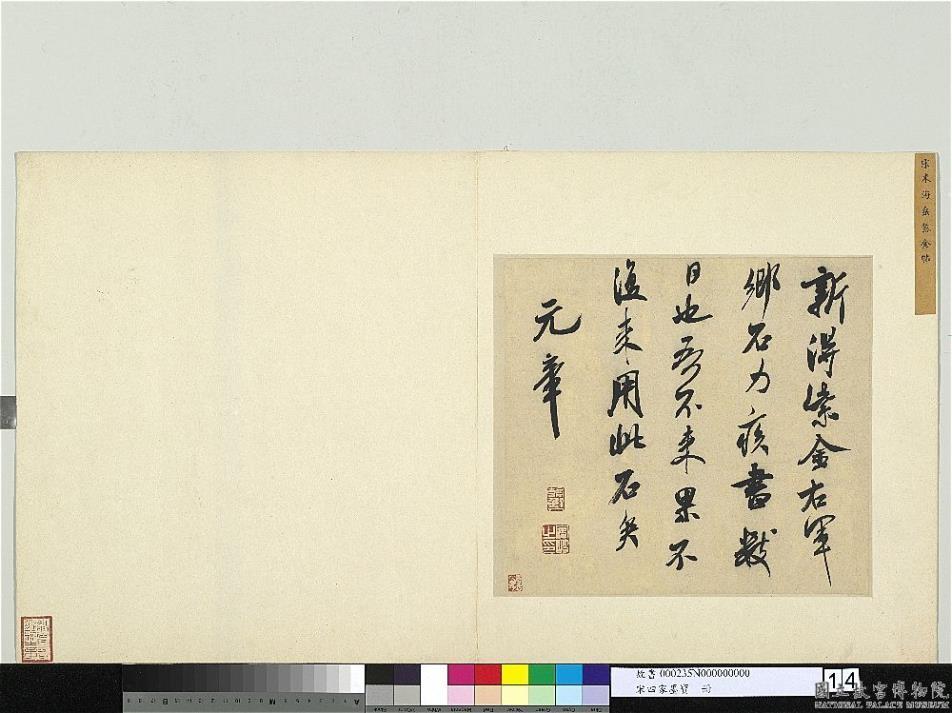 宋米海岳紫金帖
新得紫金右軍
鄉石力疾書數
日也吾不來果不
復來用此石矣
元章
故書 000235N000000000
宋四家墨寶 冊
14
國立故宮博物院
NATIONAL PALACE MUSEUM